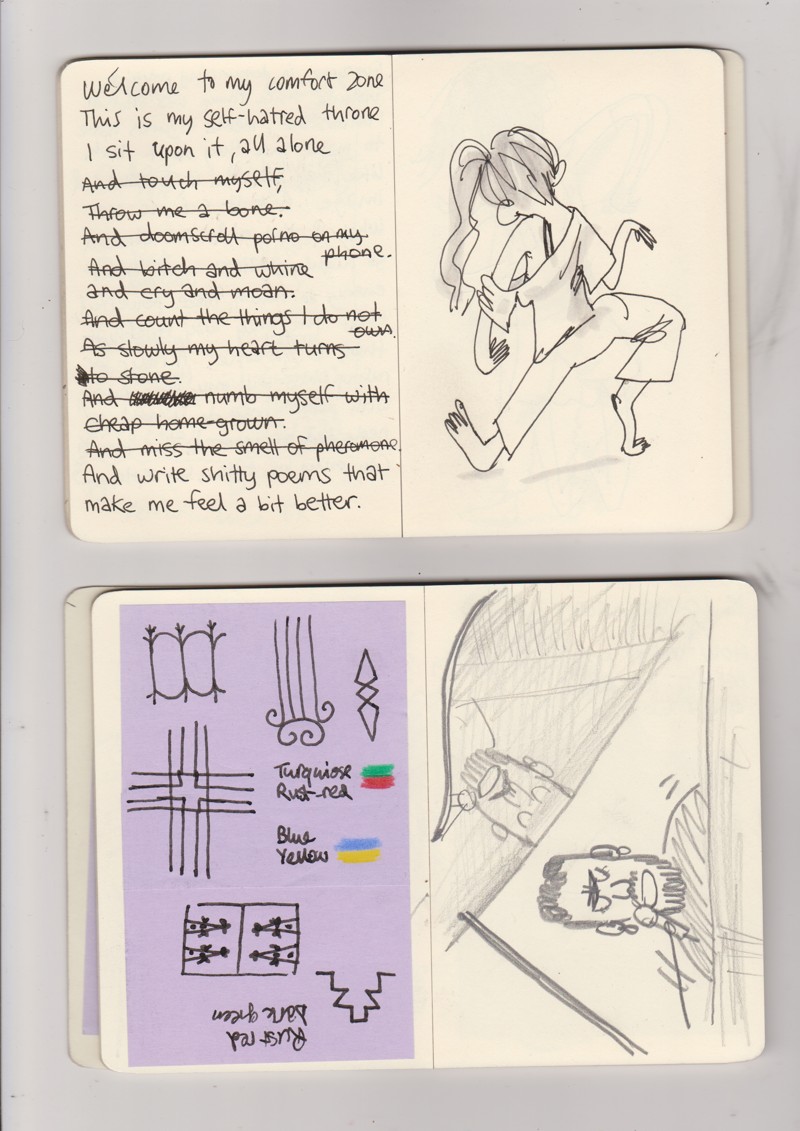 Welcome to my comfort zone
This is my self-hatred throne
I sit upon it, all alone
And touch myself,
Throw me a bone.
And doomscroll porno on my
phone.
And bitch and whine
and cry and moan.
And count the things I do not
own.
As slowly my heart turns
to stone.
And numb myself with
cheap home-grown.
And miss the smell of pheromone.
And write shitty poems that
make me feel a bit better.
Turquoise
Rust-red
Blue
Yellow
Rust red
Dark green